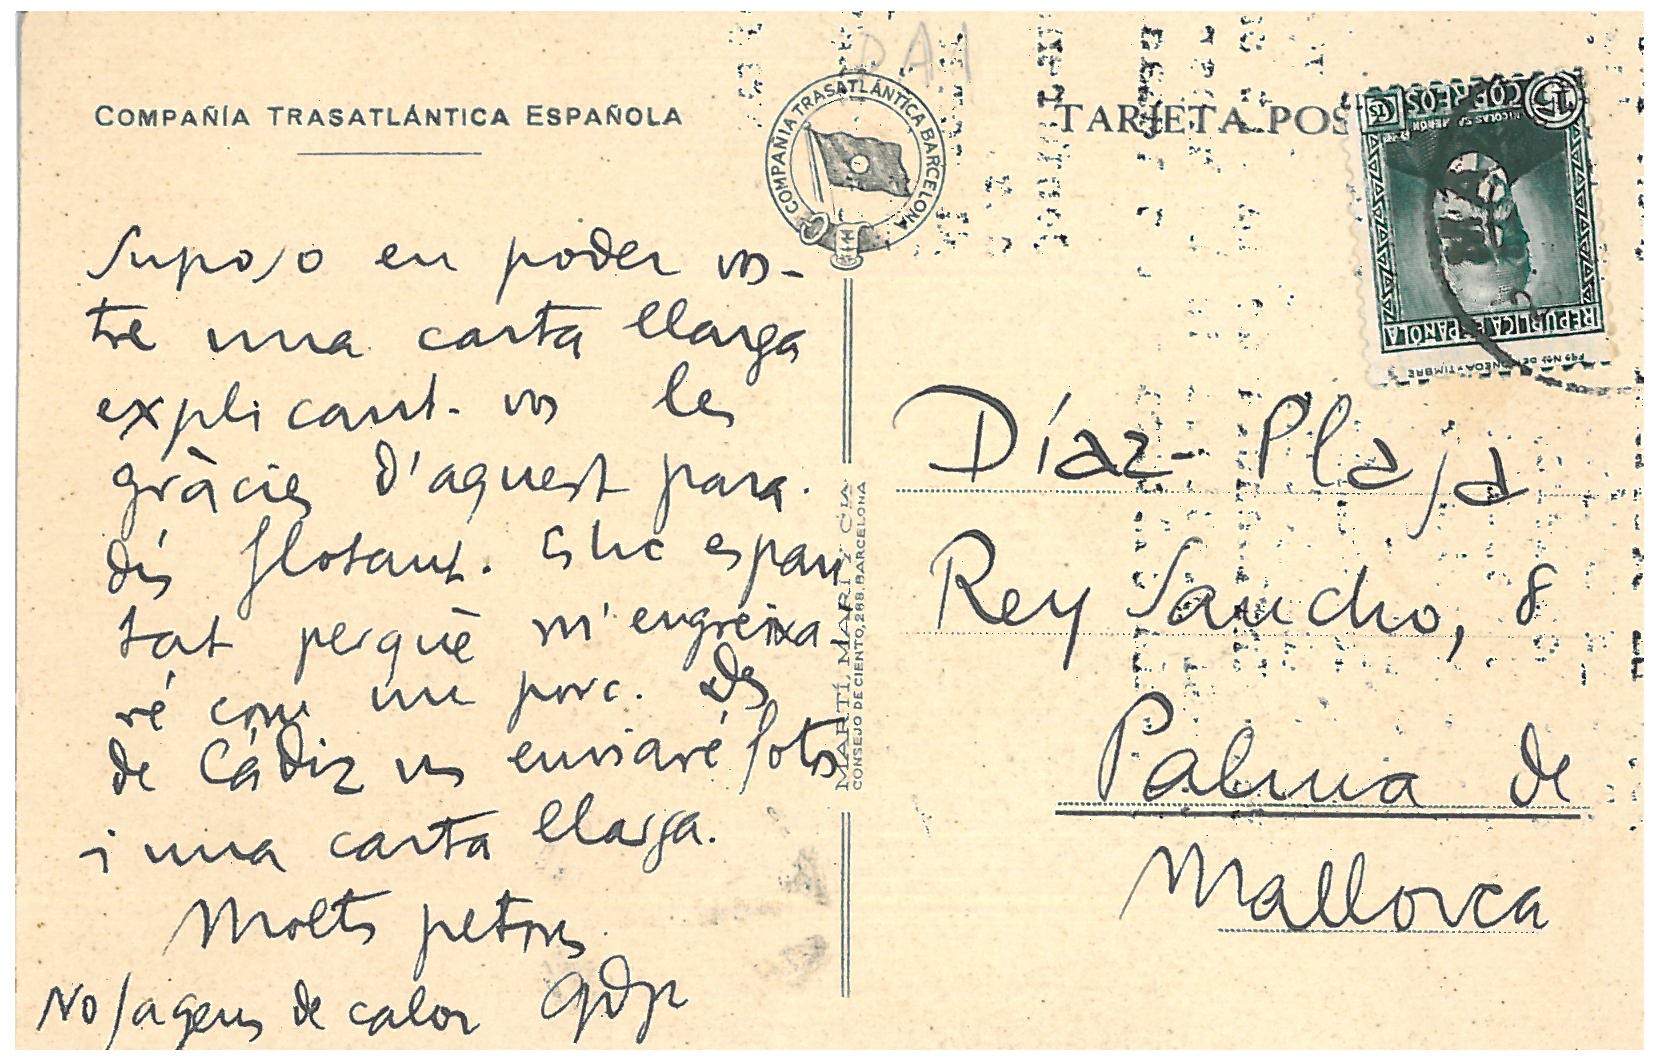 COMPAÑÍA TRASATLÁNTICA ESPAÑOLA
COMPAÑIA TRASATLÁNTICA BARCELONA
TARJETA POS
15 CORREOS Cts
NICOLAS SALMERÓN
REPUBLICA ESPAÑOLA
Suposo en poder vos-
tre una carta llarga
explicant-vos les
gràcies d'aquest para-
dís flotant. Estic espan
tat perquè m'engreixa
ré com un porc. Des
de Cádiz us enviaré fotos
i una carta llarga.
Molts petons
No fa gens de calor GDP
MARTÍ, MARÍ Y CIA
CONSEJO DE CIENTO, 268. BARCELONA
Díaz-Plaja
Rey Sancho, 8
Palma de
Mallorca